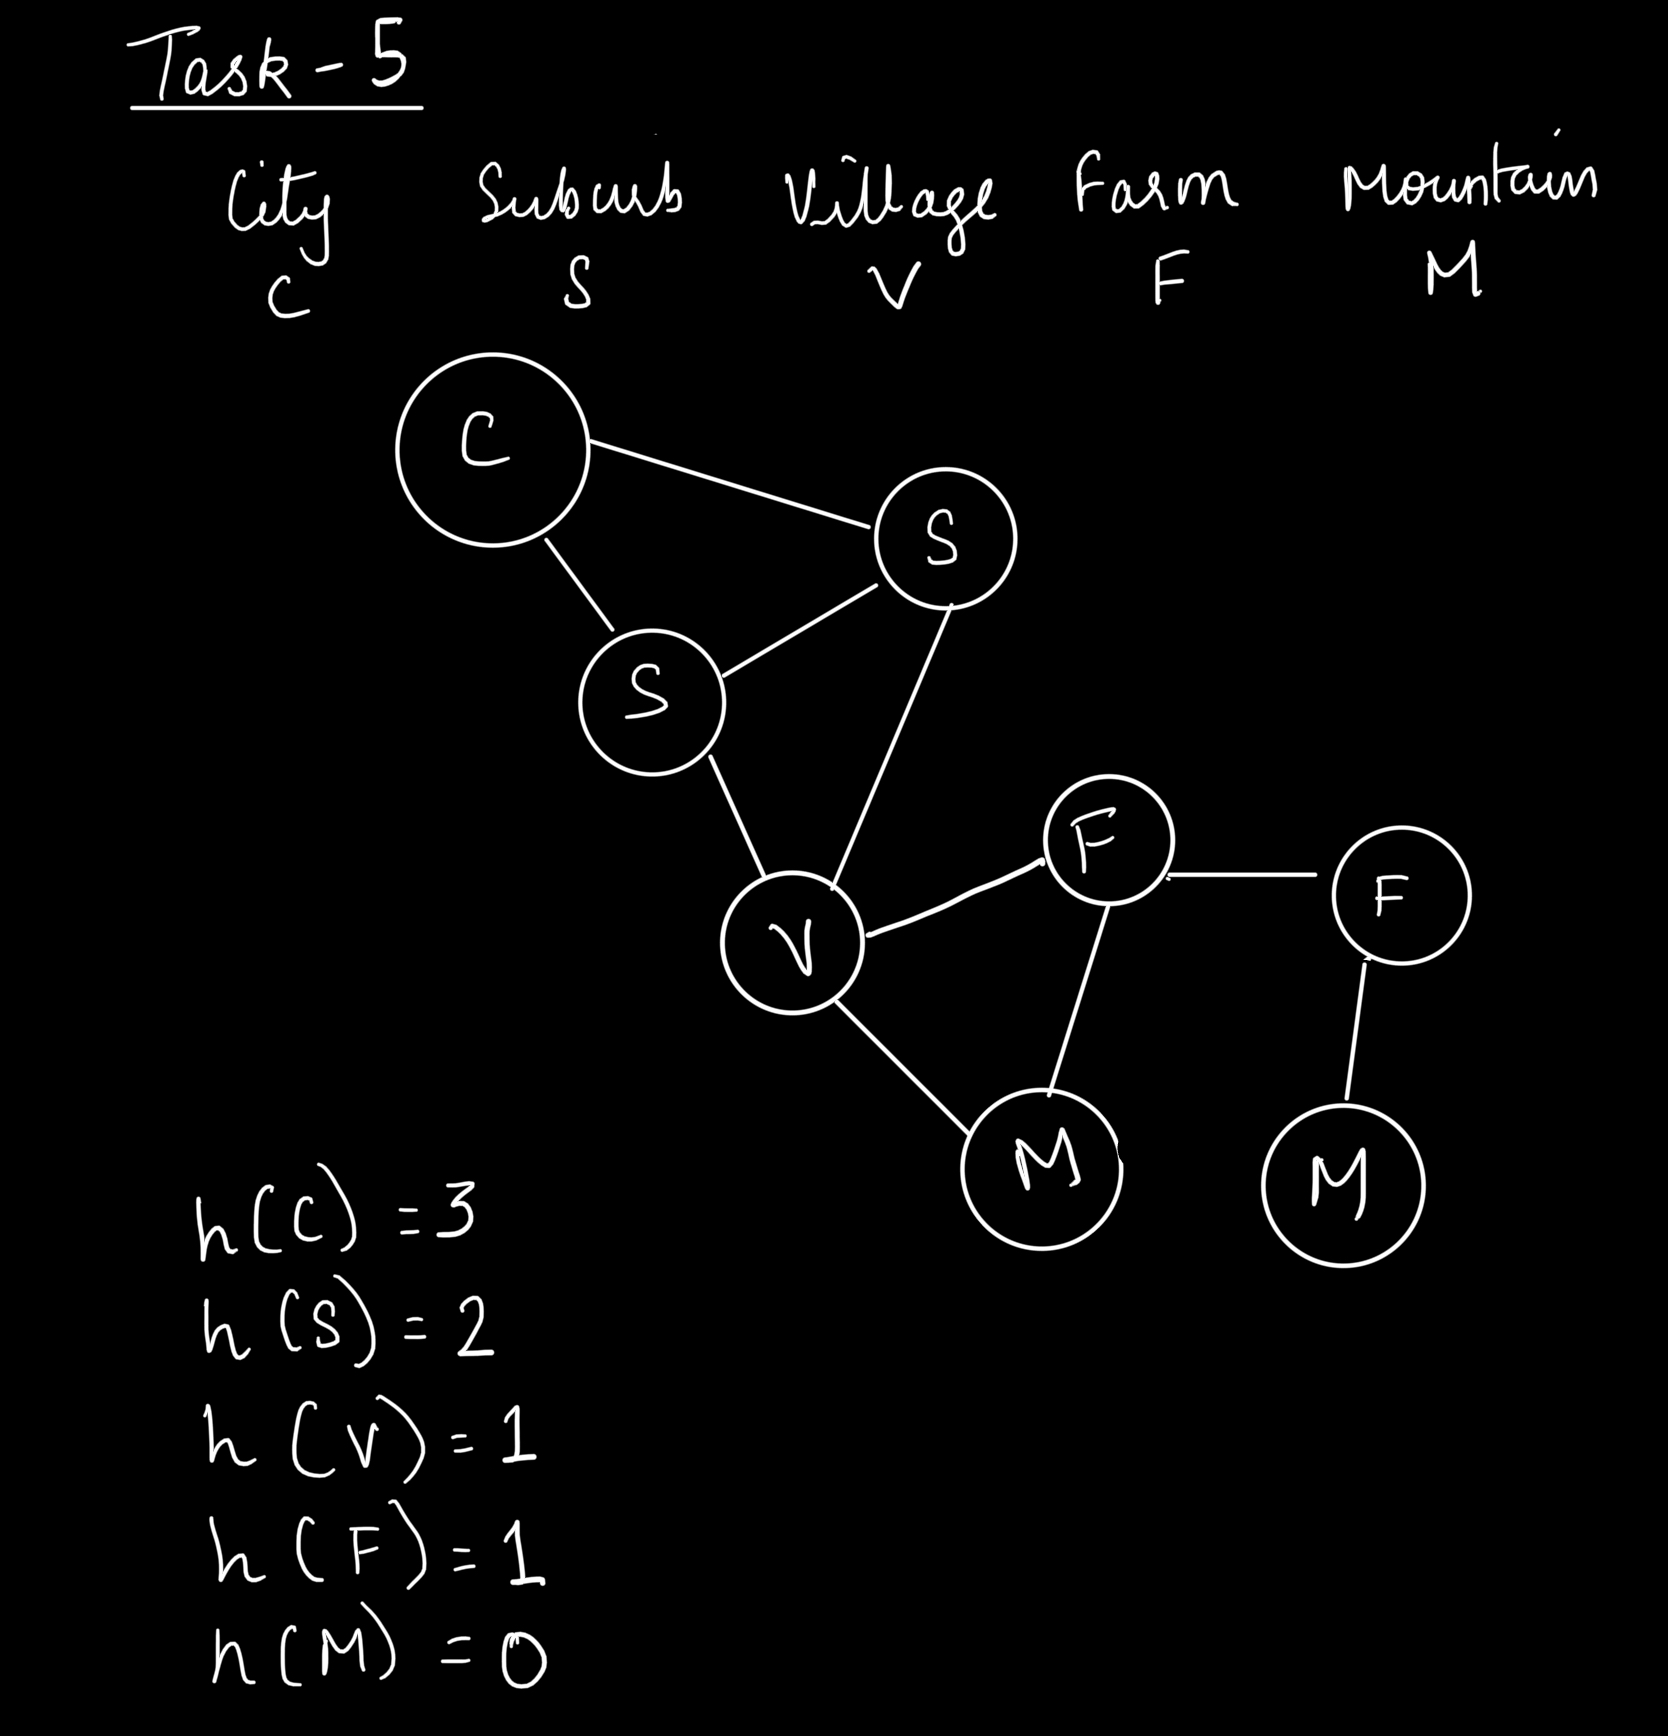 Task - 5
City Suburb Village Farm Mountain
C S V F M
C
S
S
F
F
V
M
M
h(C) = 3
h(S) = 2
h(V) = 1
h(F) = 1
h(M) = 0